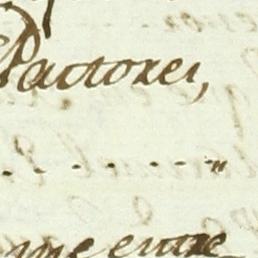 Pactores,
. . . . . . "
me entre